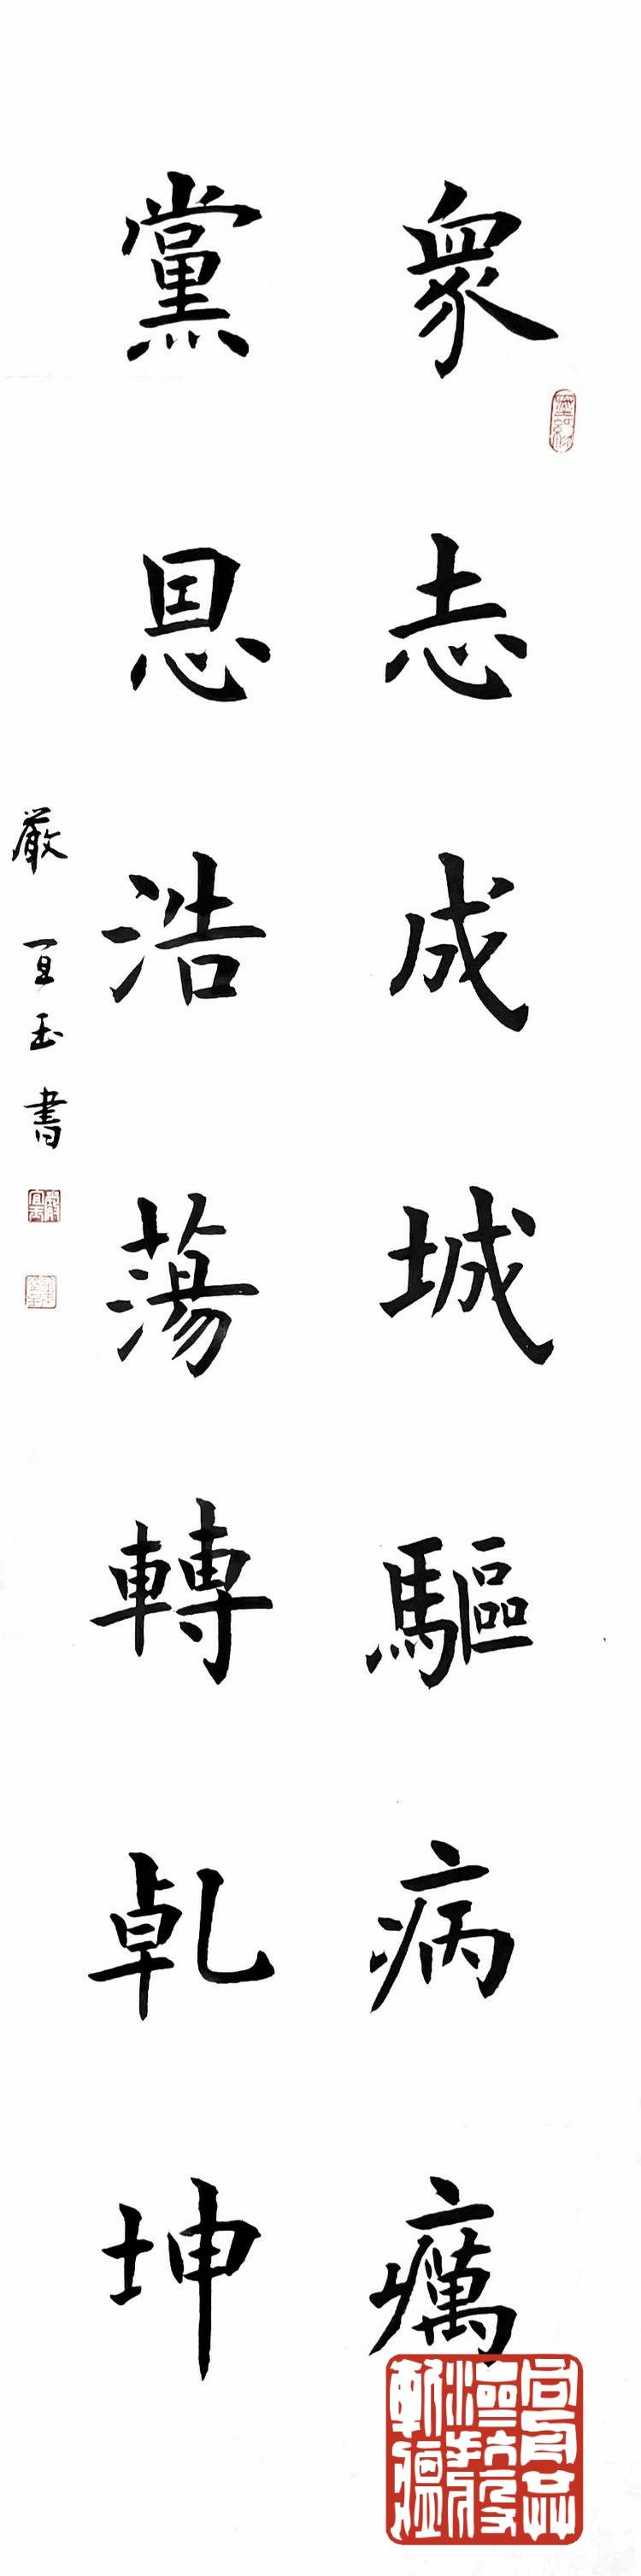 眾志成城驅病癘
黨恩浩蕩轉乹坤
嚴宜玉書